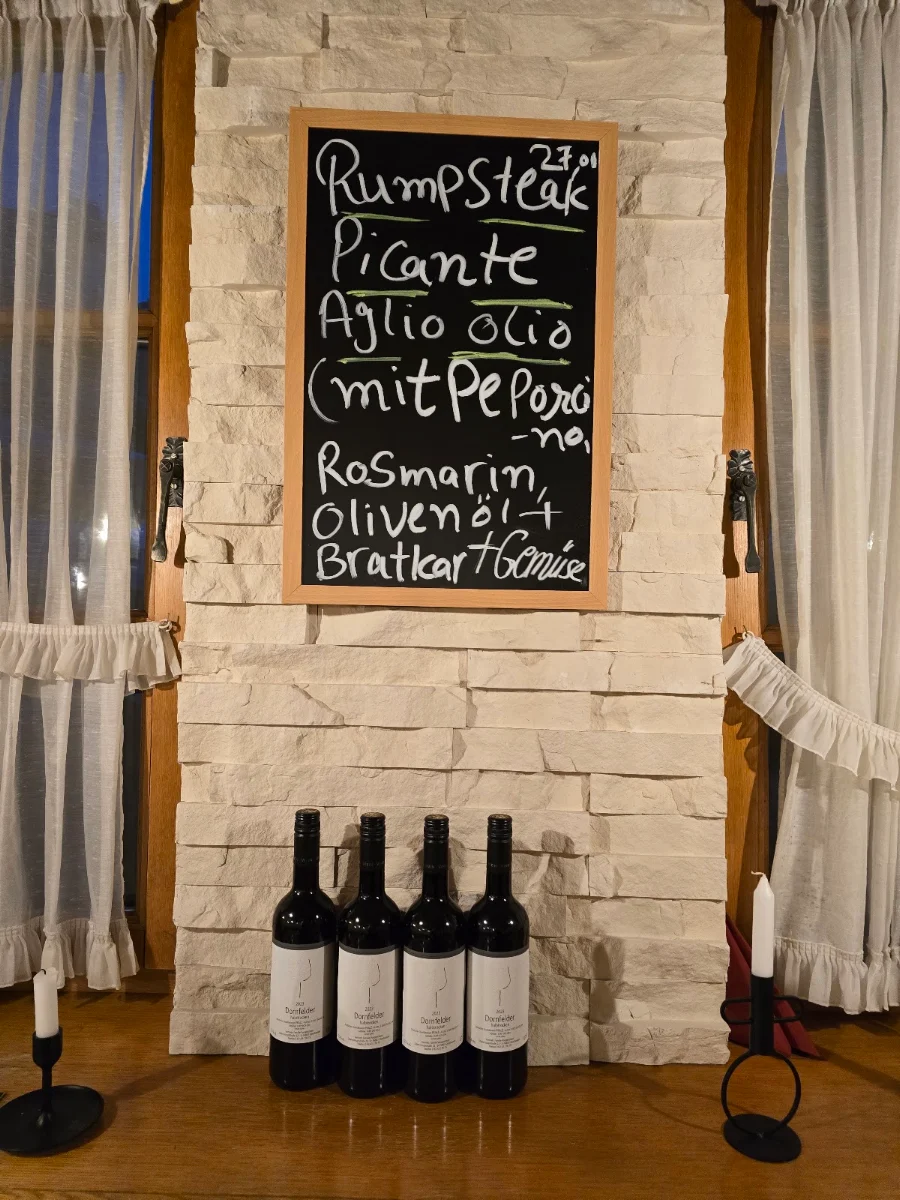 27.00
Rumpsteak
Picante
Aglio olio
(mit Peporci
-no,
Rosmarin,
Olivenöl +
Bratkar + Gemüse
Dornfelder
Dornfelder
Dornfelder
Dornfelder